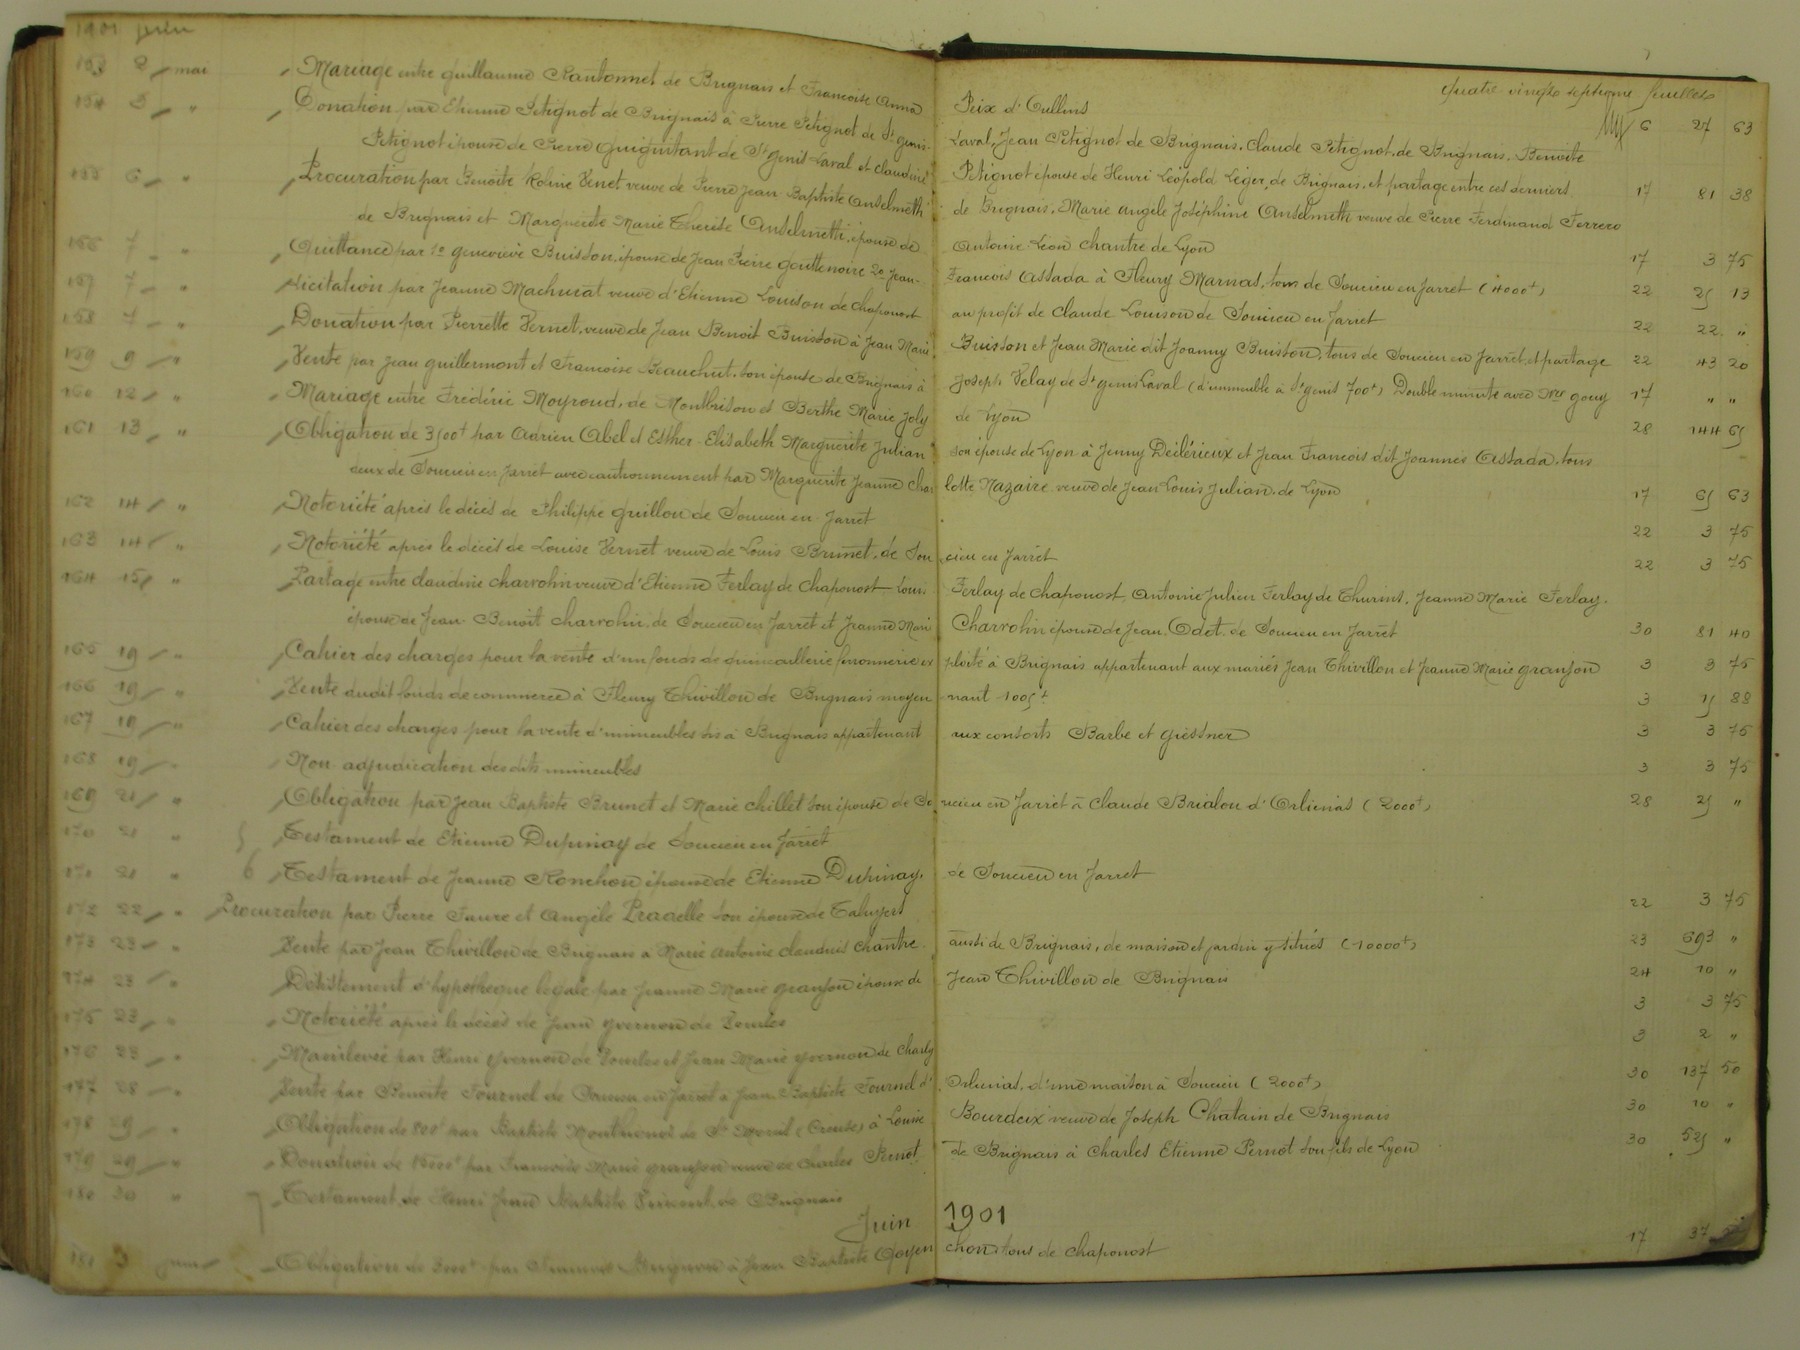 1901 juin
quatre vingts septième feuillet
153 2 mai Mariage entre guillaume Rantonnet de Brignais et Francoise Anna Peix d'Oullins 6 27 63
154 3 " Donation par Etienne Petignot de Brignais à Pierre Petignot de St genis-Laval, Jean Petignot de Brignais, Claude Petignot de Brignais, Benoite
Petignot épouse de Pierre Guiguitant de St genis-Laval et claudine Petignot épouse de Henri Léopold Léger, de Brignais, et partage entre ces derniers 17 81 38
155 6 " Procuration par Benoite Venet veuve de Pierre Jean Baptiste Anselmetti de Brignais, Marie Angèle Joséphine Anselmetti veuve de Pierre Ferdinand Ferrero
de Brignais et Marguerite Marie Thérèse Anselmetti, épouse de Antoine Léon chantre de Lyon 17 3 75
156 7 " Quittance par 1e geneviève Buisson, épouse de Jean Pierre gouttenoire 2e Jean-Francois Assada à Fleury Marnas, tous de Soucieu en Jarret (4000f) 22 25 13
157 7 " Licitation par Jeanne Machurat veuve d'Etienne Louison de chaponost au profit de Claude Louison de Soucieu en Jarret 22 22 "
158 7 " Donation par Pierrette Vernet, veuve de Jean Benoit Buisson à Jean Marie Buisson et Jean Marie dit Joanny Buisson, tous de Soucieu en Jarret, et partage 22 43 20
159 9 " Vente par Jean guillermont et Francoise Beauchut, son épouse de Brignais à Joseph Velay de St genis Laval (d'immeuble à St genis 700f) Double minute avec Me gouy 17 " "
160 12 " Mariage entre Frédéric Moyroud, de Montbrison et Berthe Marie Joly de Lyon 28 144 65
161 13 " Obligation de 3500f par Adrien Abel et Esther-Elisabeth Marguerite Julian son épouse de Lyon à Jenny Délérieux et Jean Francois dit Joannès Assada, tous
deux de Soucieu en Jarret avec cautionnement par Marguerite Jeanne Charlotte Nazaire veuve de Jean Louis Julian, de Lyon 17 65 63
162 14 " Notoriété après le décès de Philippe guillou de Soucieu en Jarret 22 3 75
163 14 " Notoriété après le décès de Louise Vernet veuve de Louis Brunet, de Soucieu en Jarret 22 3 75
164 15 " Partage entre claudine charrohin veuve d'Etienne Ferlay de chaponost, Louis Ferlay de chaponost, Antoine Julien Ferlay de Thurins, Jeanne Marie Ferlay
épouse de Jean-Benoit charvolin, de Soucieu en Jarret et Jeanne Marie Charvolin épouse de Jean Odet de Soucieu en Jarret 30 81 40
165 19 " Cahier des charges pour la vente d'un fonds de quincaillerie ferronnerie exploité à Brignais appartenant aux mariés Jean Thivillon et Jeanne Marie granjon 3 3 75
166 19 " Vente dudit fonds de commerce à Fleury Thivillon de Brignais moyennant 1005f 3 15 88
167 19 " Cahier des charges pour la vente d'immeubles sis à Brignais appartenant aux consorts Barbe et giessner 3 3 75
168 19 " Non adjudication desdits immeubles 3 3 75
169 21 " Obligation par Jean Baptiste Brunet et Marie chillet son épouse de Soucieu en Jarret à Claude Brialon d'Orliénas (2000f) 28 25 "
170 21 " 5 Testament de Etienne Dupinay de Soucieu en Jarret
171 21 " 6 Testament de Jeanne Ronchon épouse de Etienne Dupinay, de Soucieu en Jarret
172 22 " Procuration par Pierre Faure et Angèle Pradelle son épouse de Taluyers 22 3 75
173 23 " Vente par Jean Thivillon de Brignais à Marie Antoine claudius chantre aussi de Brignais, de maison et jardin y situés (10000f) 23 693 "
174 23 " Désistement d'hypothèque légale par Jeanne Marie granjon épouse de Jean Thivillon de Brignais 24 10 "
175 23 " Notoriété après le décès de Jean Yvernon de Vourles 3 3 75
176 23 " Mainlevée par Henri Yvernon de Vourles et Jean Marie Yvernon de Charly 3 2 "
177 28 " Vente par Benoite Fournel de Soucieu en Jarret à Jean Baptiste Fournel d'Orliénas, d'une maison à Soucieu (2000f) 30 137 50
178 29 " Obligation de 800f par Baptiste de St (Creuse) à Louise Bourdeix veuve de Joseph Chatain de Brignais 30 10 "
179 29 " Donation de par Francoise Marie granjon veuve de Charles Pernot de Brignais à Charles Etienne Pernot son fils de Lyon 30 525 "
180 30 " 7 Testament de Henri Jean Baptiste Vincent de Brignais
Juin 1901
181 3 juin Obligation de 3000f par à Jean Baptiste Goyenchon tous de chaponost 17 37